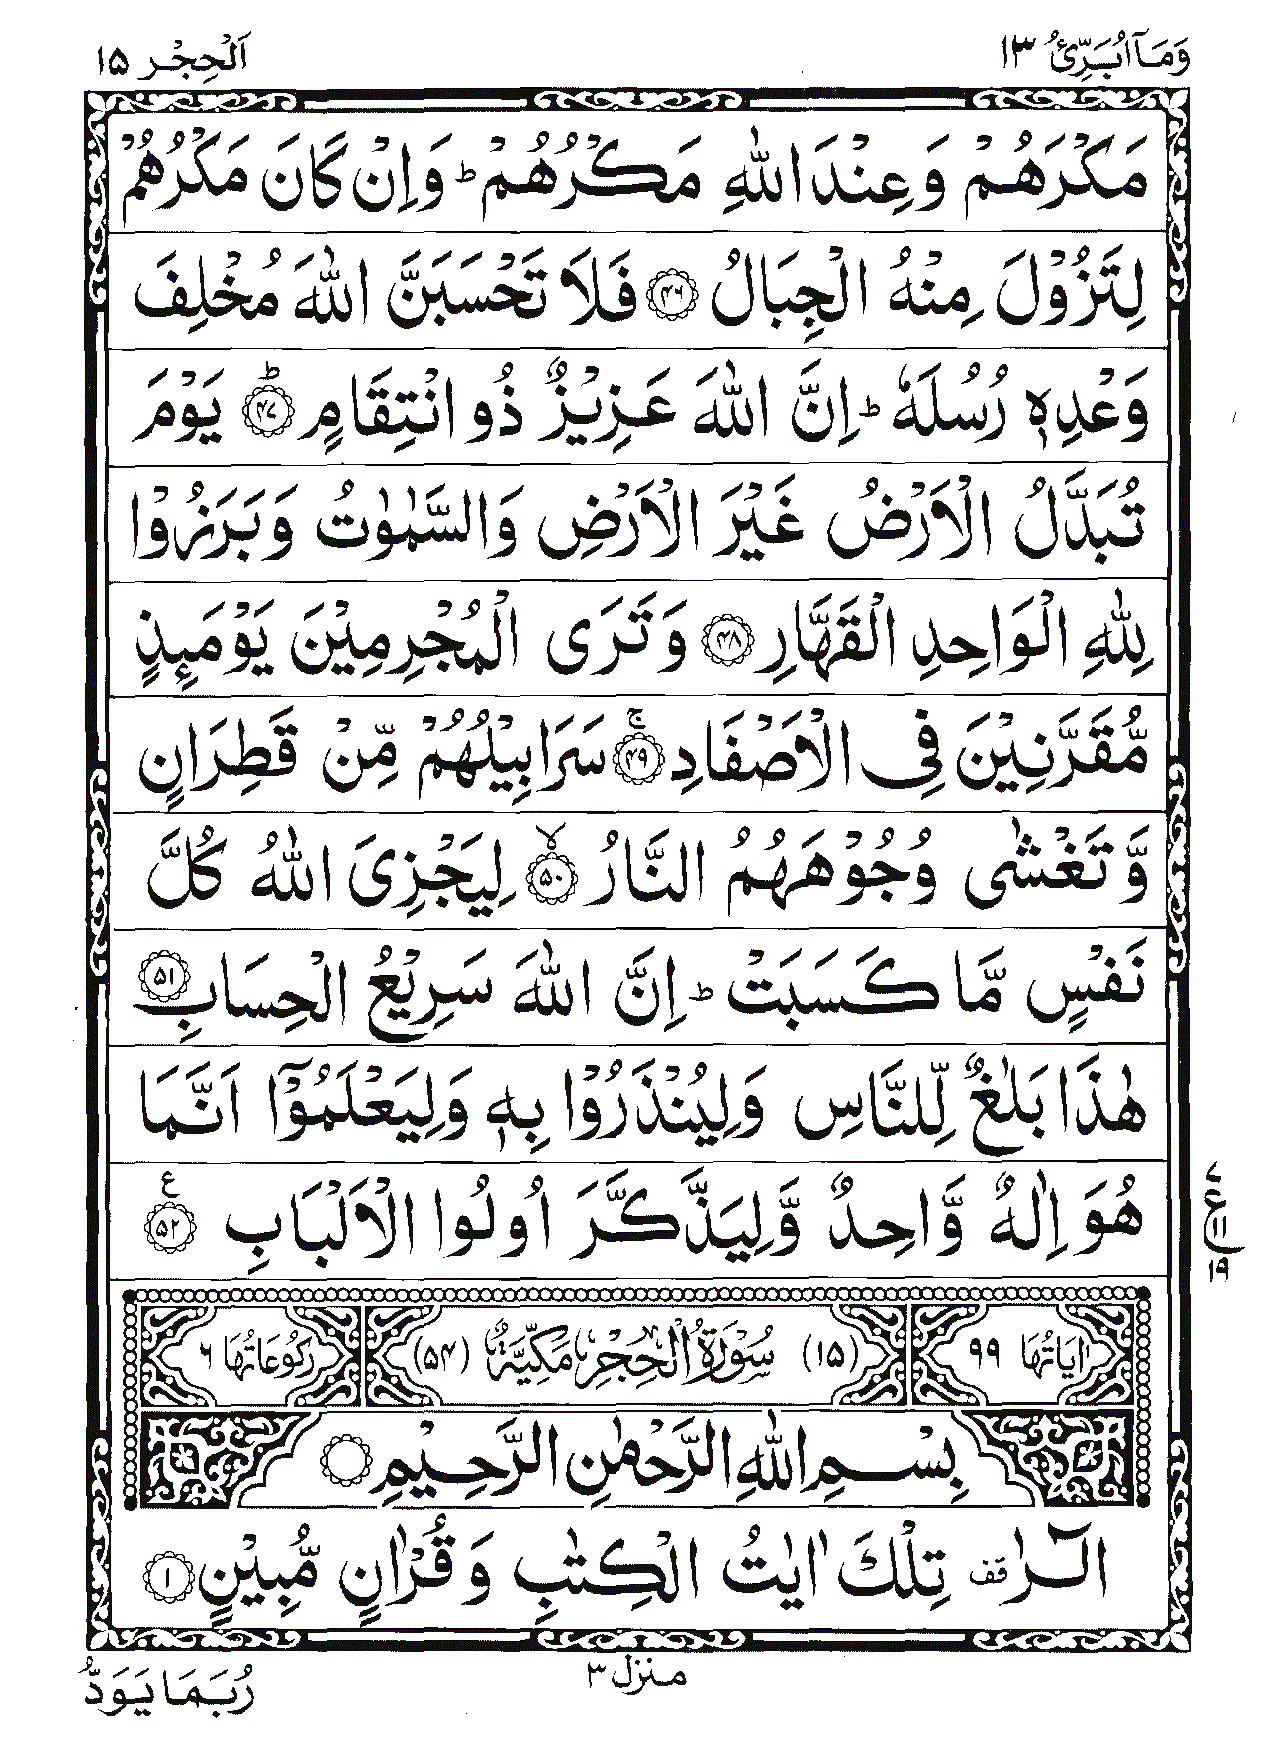 وَمَآ اُبَرِّئُ ١٣
اَلْحِجْر ١٥
مَكْرَهُمْ وَعِنْدَ اللّٰهِ مَكْرُهُمْ ؕ وَاِنْ كَانَ مَكْرُهُمْ
لِتَزُوْلَ مِنْهُ الْجِبَالُ ۝۴۶ فَلَا تَحْسَبَنَّ اللّٰهَ مُخْلِفَ
وَعْدِهٖ رُسُلَهٗ ؕ اِنَّ اللّٰهَ عَزِيْزٌ ذُو انْتِقَامٍ ۝۴۷ؕ يَوْمَ
تُبَدَّلُ الْاَرْضُ غَيْرَ الْاَرْضِ وَالسَّمٰوٰتُ وَبَرَزُوْا
لِلّٰهِ الْوَاحِدِ الْقَهَّارِ ۝۴۸ وَتَرَى الْمُجْرِمِيْنَ يَوْمَئِذٍ
مُّقَرَّنِيْنَ فِى الْاَصْفَادِ ۝۴۹ۚ سَرَابِيْلُهُمْ مِّنْ قَطِرَانٍ
وَّتَغْشٰى وُجُوْهَهُمُ النَّارُ ۝۵۰ۙ لِيَجْزِىَ اللّٰهُ كُلَّ
نَفْسٍ مَّا كَسَبَتْ ؕ اِنَّ اللّٰهَ سَرِيْعُ الْحِسَابِ ۝۵۱
هٰذَا بَلٰغٌ لِّلنَّاسِ وَلِيُنْذَرُوْا بِهٖ وَلِيَعْلَمُوْٓا اَنَّمَا
هُوَ اِلٰهٌ وَّاحِدٌ وَّلِيَذَّكَّرَ اُولُوا الْاَلْبَابِ ۝۵۲ع
٧
ع
١١
١٩
اٰيَاتُهَا ٩٩ (١٥) سُوْرَةُ الْحِجْرِ مَكِّيَّةٌ (۵۴) رُكُوْعَاتُهَا ٦
بِسْمِ اللّٰهِ الرَّحْمٰنِ الرَّحِيْمِ
الٓرٰ قف تِلْكَ اٰيٰتُ الْكِتٰبِ وَقُرْاٰنٍ مُّبِيْنٍ ۝۱
منزل ٣
رُبَمَا يَوَدُّ